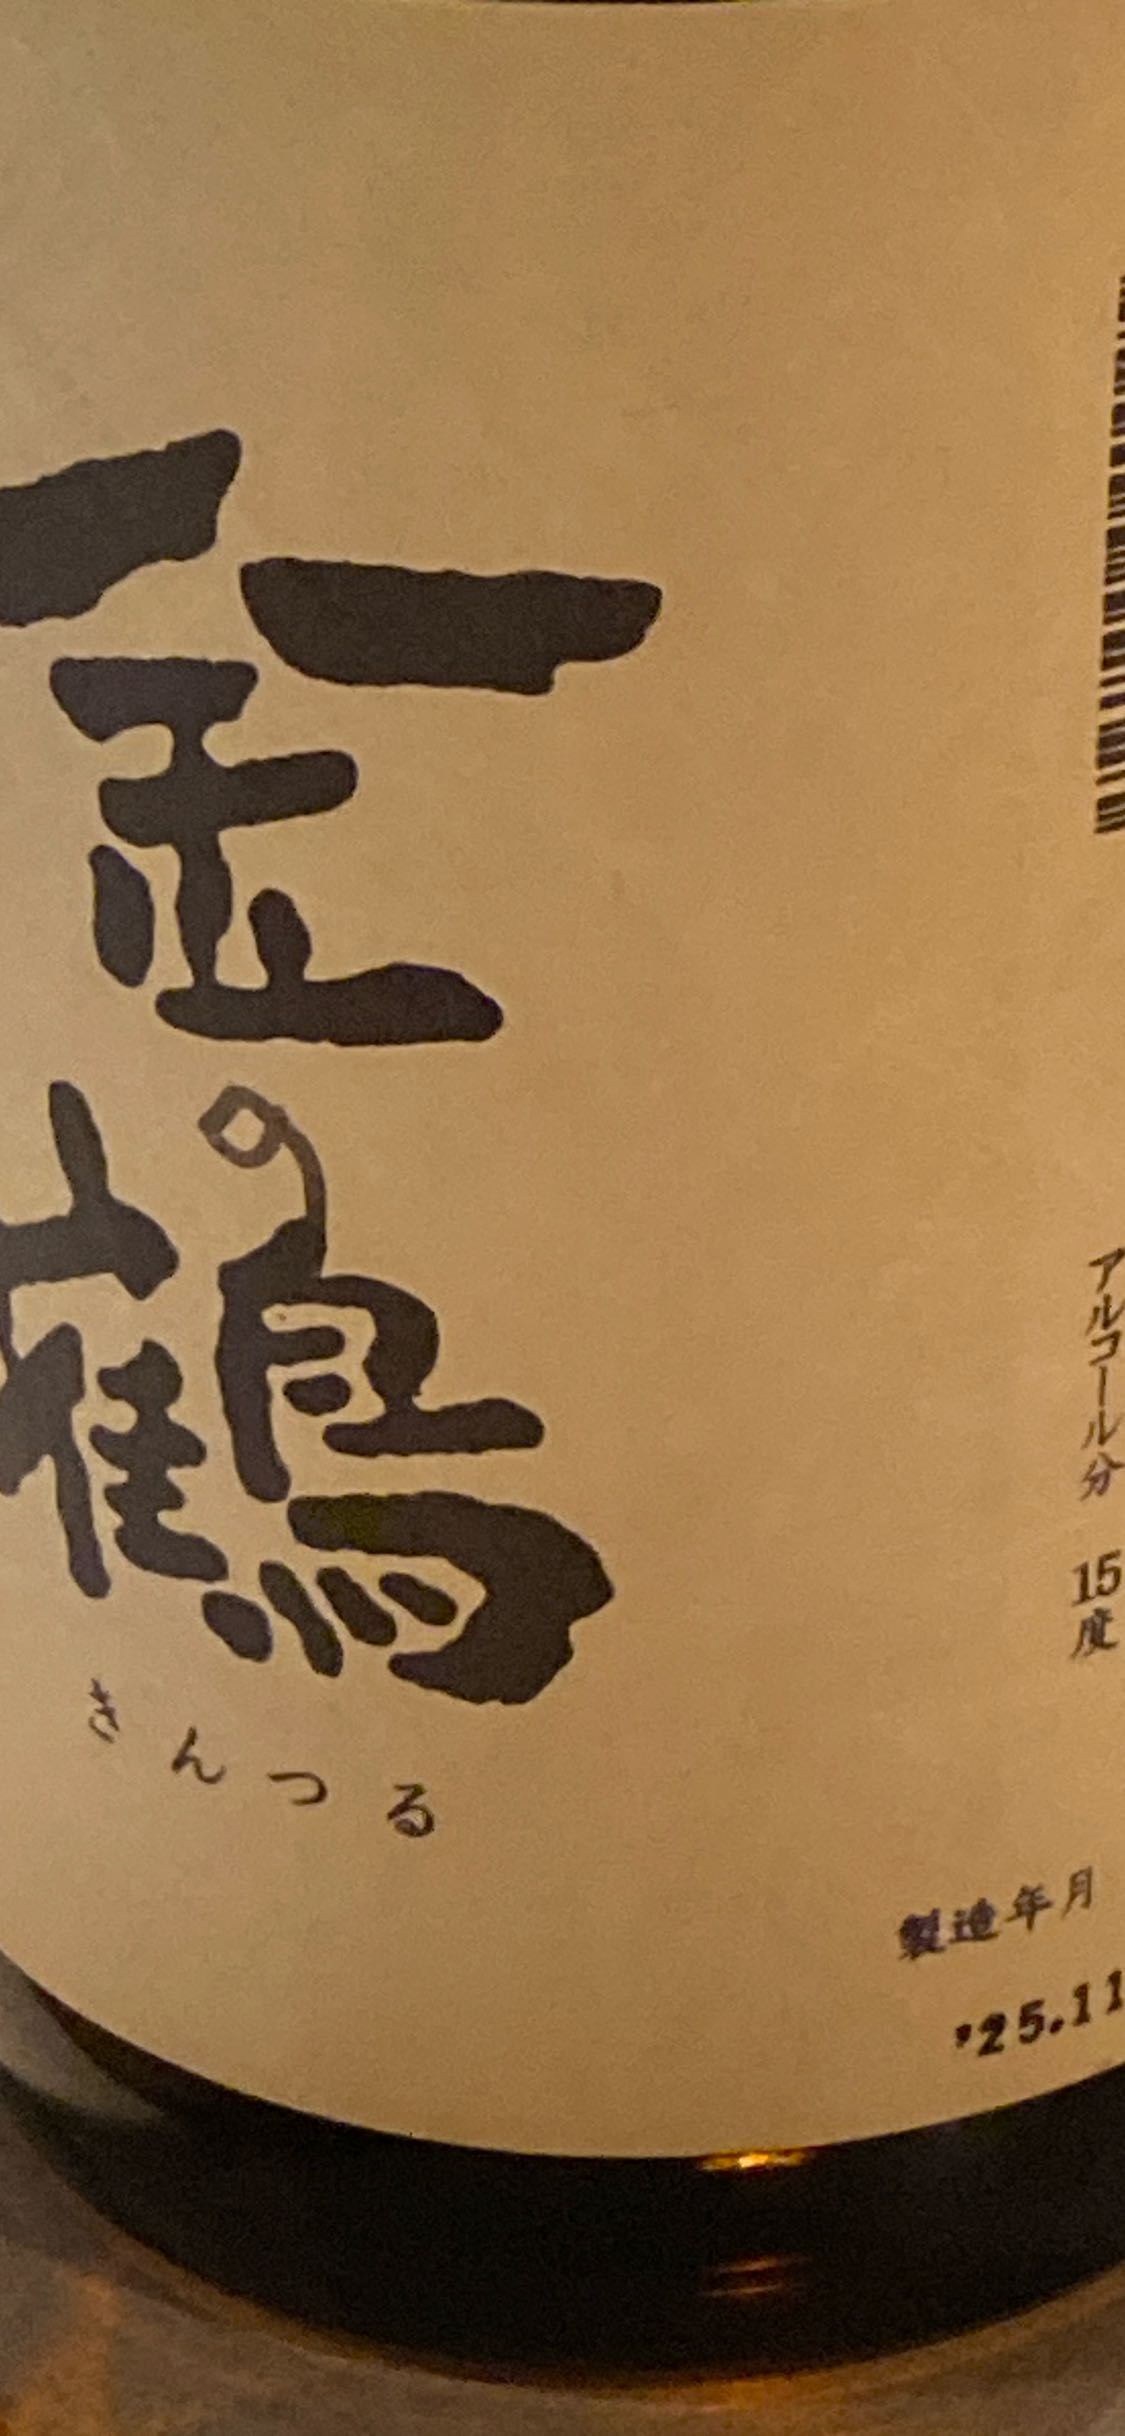 金鶴
きんつる
アルコール分 15度
製造年月
'25.11